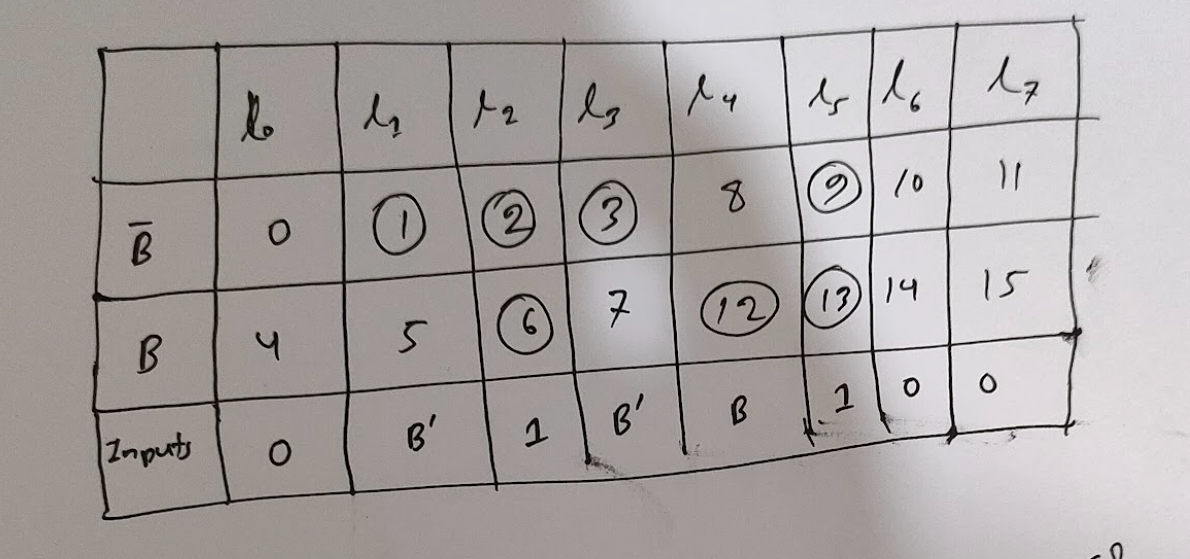 I₀ I₁ I₂ I₃ I₄ I₅ I₆ I₇
B̅ 0 1 2 3 8 9 10 11
B 4 5 6 7 12 13 14 15
Inputs 0 B' 1 B' B 1 0 0